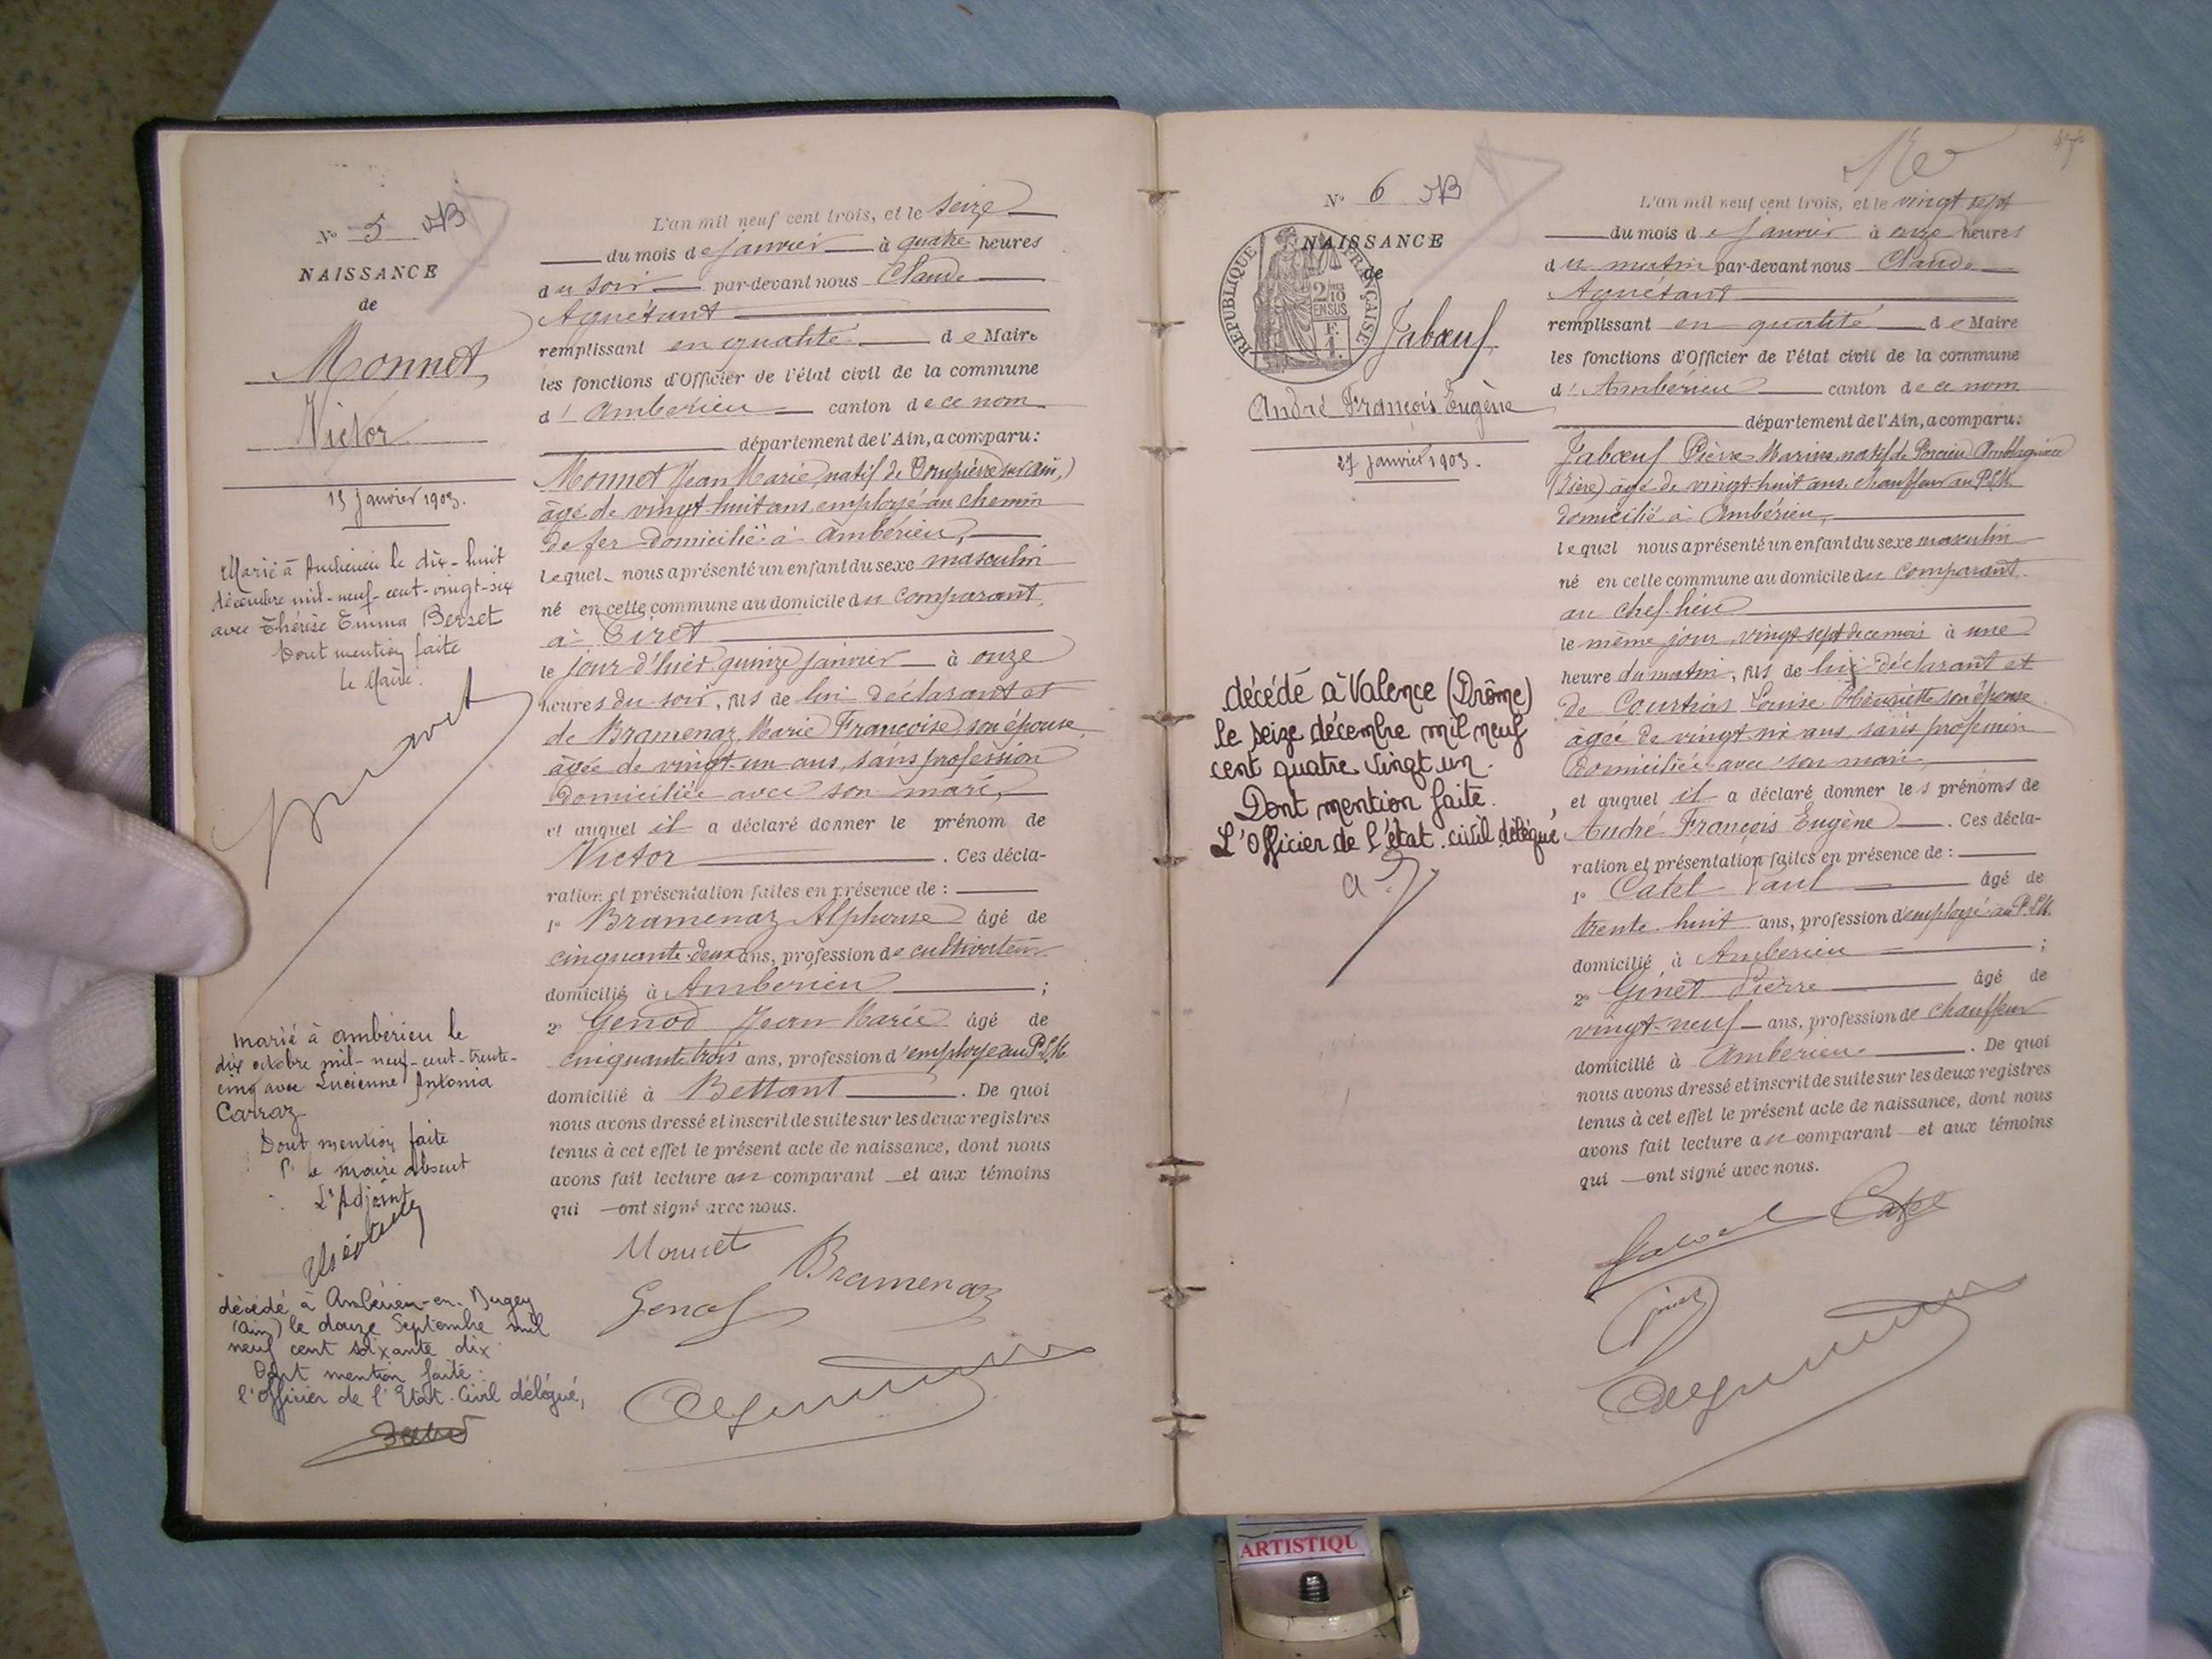 N° 5 VB
NAISSANCE
de
Monnet
Victor
15 janvier 1903.
Marié à Ambérieu le dix-huit
décembre mil-neuf-cent-vingt-six
avec Thérèse Emma Berset
Dont mention faite
Le Maire.
marié à ambérieu le
dix octobre mil-neuf-cent-trente-
cinq avec Lucienne Antonia
Carraz
Dont mention faite
le maire absent
L'Adjoint
décédé à Ambérieu-en-Bugey
(Ain) le douze Septembre mil
neuf cent soixante dix
Dont mention faite :
l'officier de l'Etat-Civil délégué,
L'an mil neuf cent trois, et le seize
du mois de janvier à quatre heures
du soir par-devant nous Claude
Aguétant
remplissant en qualité de Maire
les fonctions d'Officier de l'état civil de la commune
d'Ambérieu canton de ce nom
département de l'Ain, a comparu :
Monnet Jean Marie natif de (Ain,)
âgé de vingt-huit ans employé au chemin
de fer domicilié à Ambérieu,
lequel nous a présenté un enfant du sexe masculin
né en cette commune au domicile du comparant,
à Tiret
le jour d'hier quinze janvier à onze
heures du soir, fils de lui déclarant et
de Bramenaz Marie Françoise son épouse,
âgée de vingt-un ans, sans profession
domiciliée avec son mari,
et auquel il a déclaré donner le prénom de
Victor . Ces décla-
ration et présentation faites en présence de :
1° Bramenaz Alphonse âgé de
cinquante-deux ans, profession de cultivateur
domicilié à Ambérieu ;
2° Genod Jean Marie âgé de
cinquante trois ans, profession d'employé au P.L.M.
domicilié à Bettant . De quoi
nous avons dressé et inscrit de suite sur les deux registres
tenus à cet effet le présent acte de naissance, dont nous
avons fait lecture au comparant et aux témoins
qui ont signé avec nous.
Monnet Bramenaz
Genod
Aguétant
N° 6 VB
NAISSANCE
de
REPUBLIQUE FRANÇAISE
2/10 EN SUS
F. 1.
Jabœuf
André François Eugène
27 janvier 1903.
décédé à Valence (Drôme)
le seize décembre mil neuf
cent quatre vingt un.
Dont mention faite.
L'Officier de l'état.civil délégué,
L'an mil neuf cent trois, et le vingt sept
du mois de janvier à onze heures
du matin par-devant nous Claude
Aguétant
remplissant en qualité de Maire
les fonctions d'Officier de l'état civil de la commune
d'Ambérieu canton de ce nom
département de l'Ain, a comparu :
Jabœuf Pierre Marius, natif de Porcieu Amblagnieu
(Isère) âgé de vingt-huit ans, chauffeur au P.L.M.
domicilié à Ambérieu,
lequel nous a présenté un enfant du sexe masculin
né en cette commune au domicile du comparant
au chef-lieu
le même jour vingt-sept de ce mois à une
heure du matin, fils de lui déclarant et
de Louise Henriette son épouse
âgée de vingt ans, sans profession
domiciliée avec son mari,
et auquel il a déclaré donner les prénoms de
André François Eugène . Ces décla-
ration et présentation faites en présence de :
1° Catel Paul âgé de
trente huit ans, profession d'employé au P.L.M.
domicilié à Ambérieu ;
2° Ginet Pierre âgé de
vingt-neuf ans, profession de chauffeur
domicilié à Ambérieu . De quoi
nous avons dressé et inscrit de suite sur les deux registres
tenus à cet effet le présent acte de naissance, dont nous
avons fait lecture au comparant et aux témoins
qui ont signé avec nous.
Jabœuf Catel
Ginet
Aguétant
ARTISTIQU